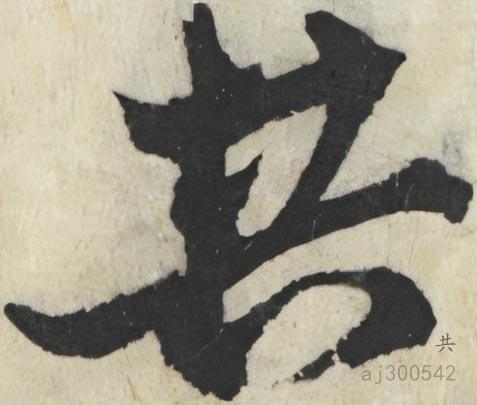 共
共
aj300542